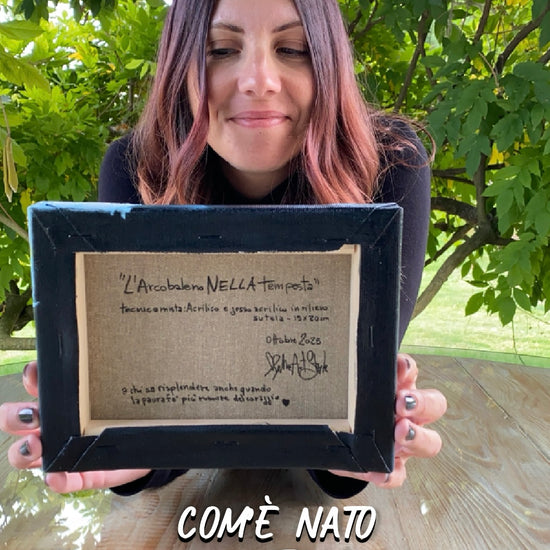 "L'Arcobaleno NELLA tempesta"
tecnica mista: Acrilico e gesso acrilico in rilievo
su tela - 15x20cm
Ottobre 2025
a chi sa risplendere anche quando
la paura fa più rumore del coraggio
COM'È NATO